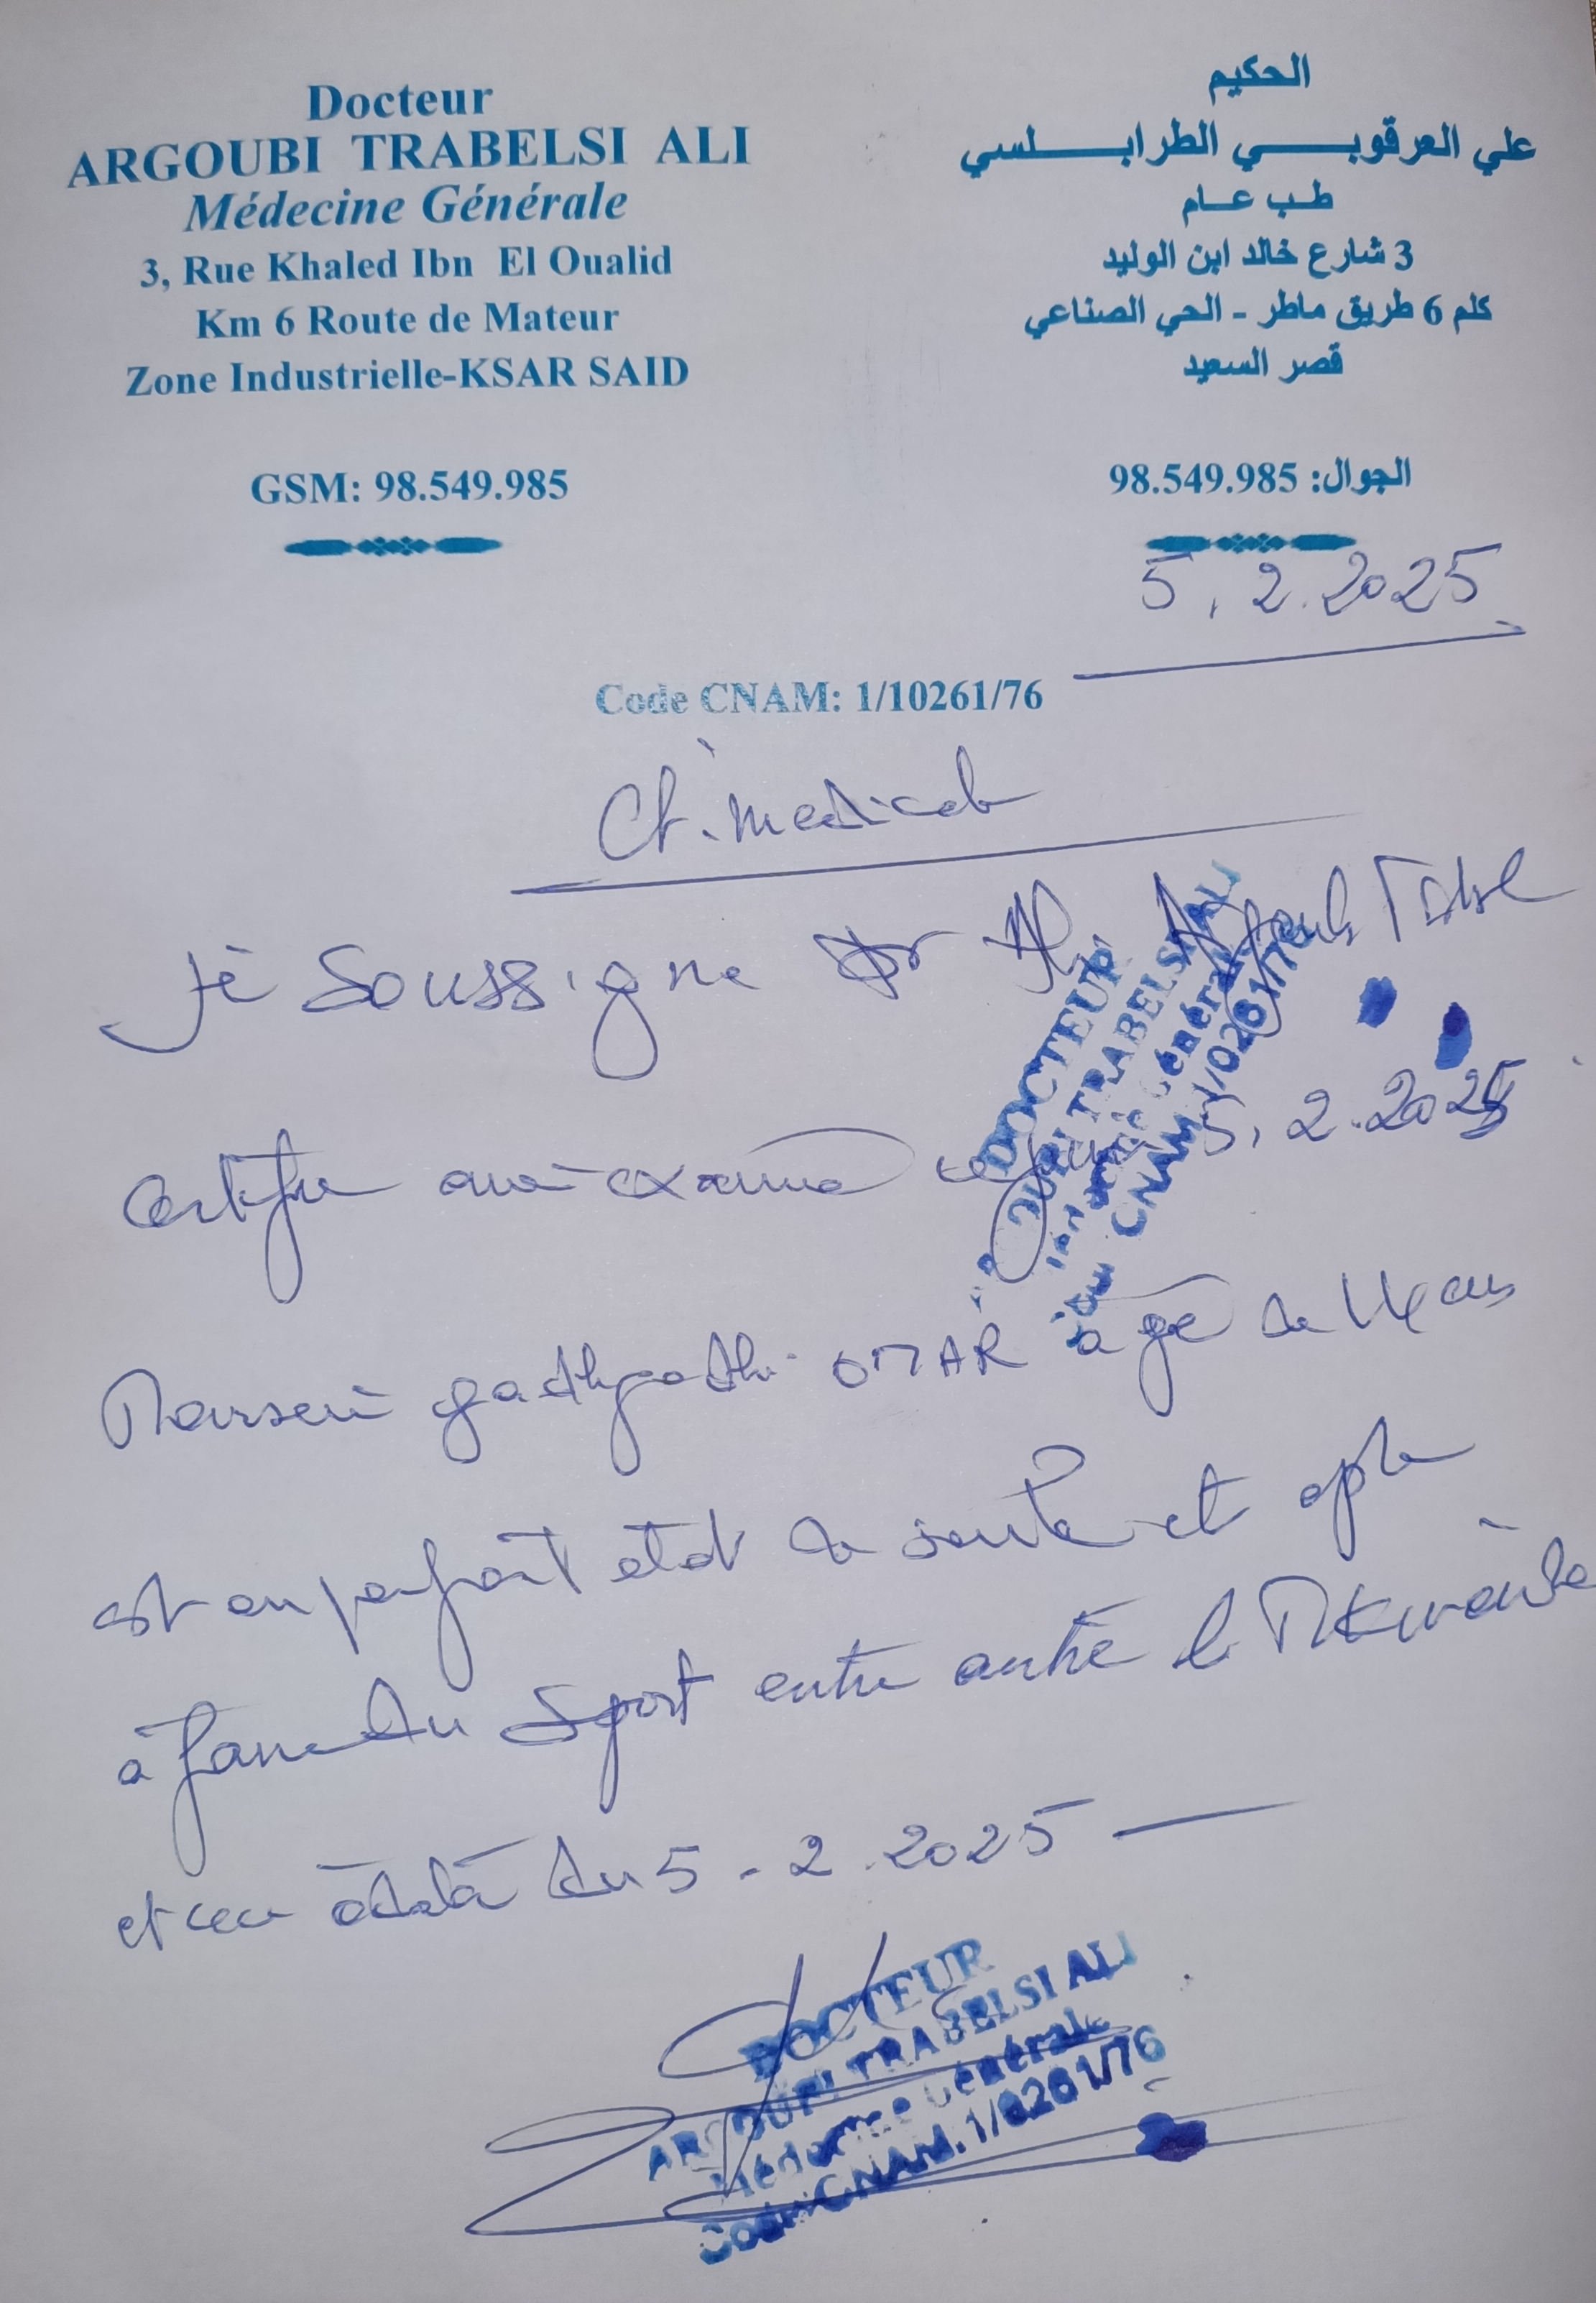 Docteur
ARGOUBI TRABELSI ALI
Médecine Générale
3, Rue Khaled Ibn El Oualid
Km 6 Route de Mateur
Zone Industrielle-KSAR SAID
GSM: 98.549.985
الحكيم
علي العرقوبي الطرابلسي
طب عام
3 شارع خالد ابن الوليد
كلم 6 طريق ماطر - الحي الصناعي
قصر السعيد
الجوال: 98.549.985
5.2.2025
Code CNAM: 1/10261/76
Ct. medical
Je soussigné Dr
certifie avoir examiné ce jour 5.2.2025
OMAR agé de ans
est en parfait état de santé et apte
à faire du sport entre autre le
et ceci à daté du 5-2.2025
DOCTEUR
TRABELSI ALI
Générale
CNAM 1/0261/76
DOCTEUR
ARGOUBI TRABELSI ALI
Médecine Générale
Code CNAM. 1/0261/76